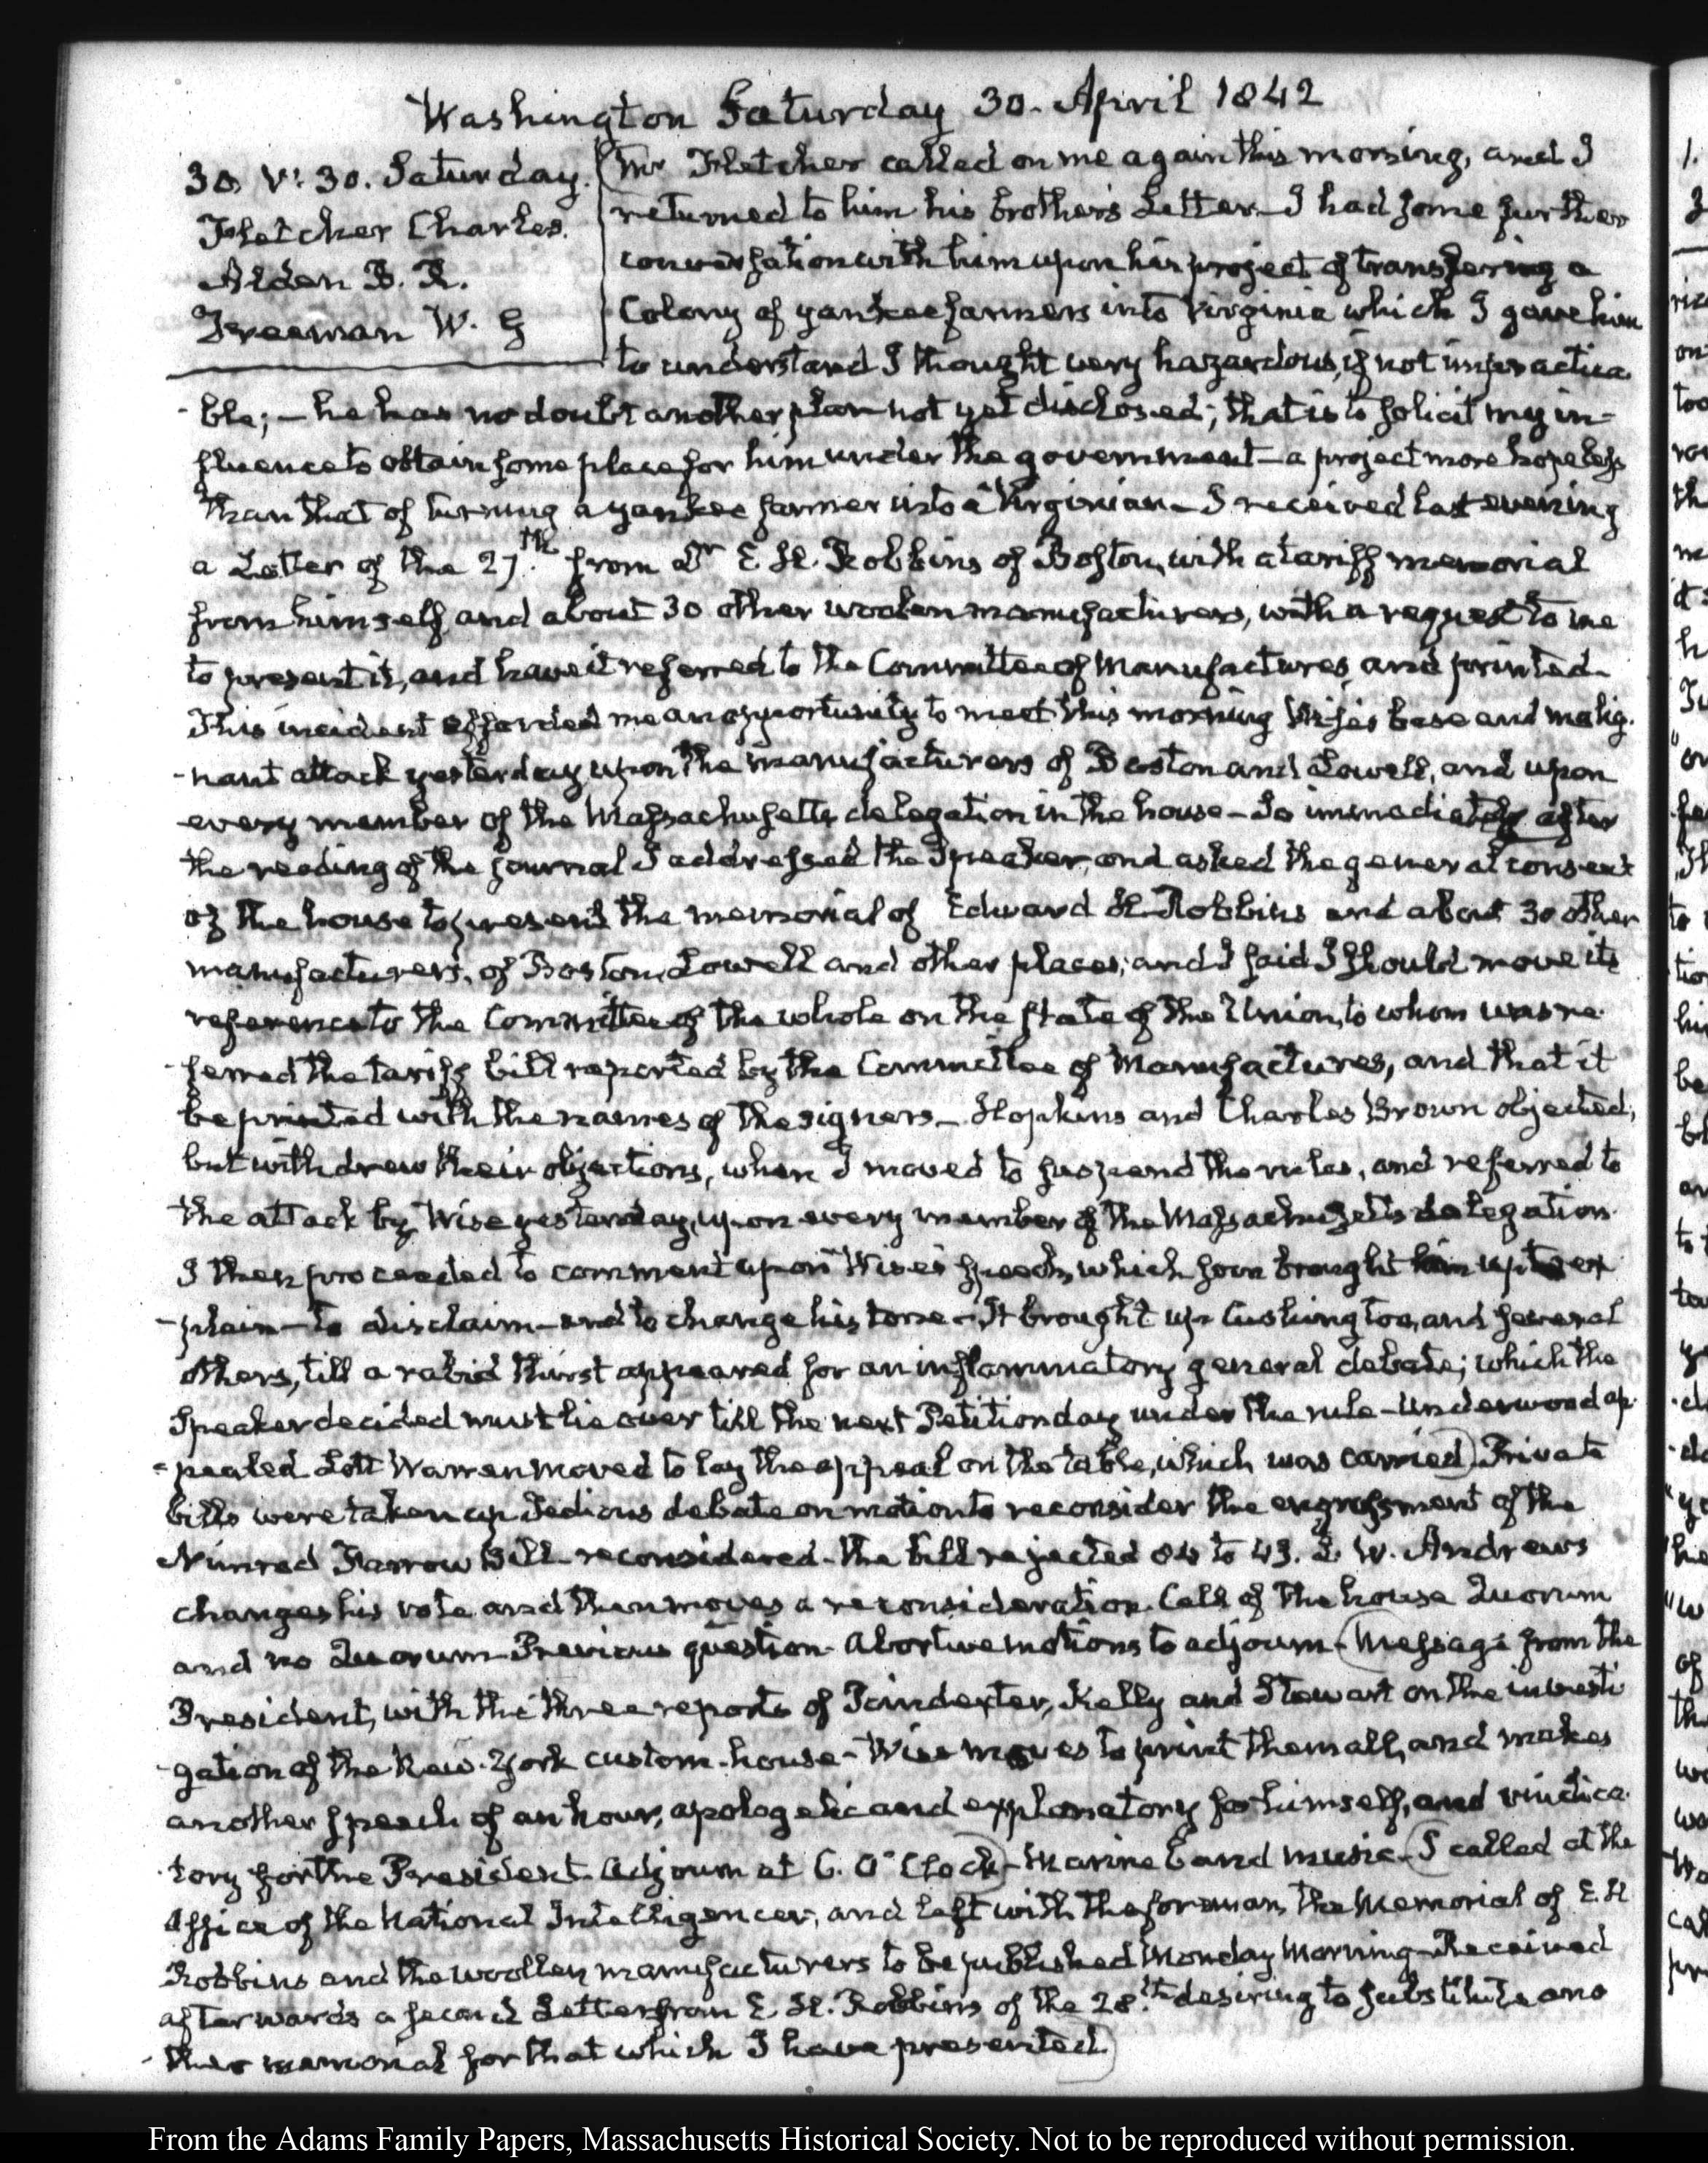 Washington Saturday 30. April 1842
30. V: 30. Saturday.
Fletcher Charles.
Alden B. R.
Freeman W. G
Mr Fletcher called on me again this morning, and I
returned to him his brother's Letter— I had some further
conversation with him upon his project of transferring a
Colony of yankee farmers into Virginia which I gave him
to understand I thought very hazardous, if not impractica
ble;— he has no doubt another plan not yet disclosed; that is to solicit my in-
fluence to obtain some place for him under the government— a project more hopeless
than that of turning a yankee farmer into a Virginian— I received last evening
a Letter of the 27.th from Dr E. H. Robbins of Boston, with a tariff memorial
from himself and about 30 other woolen manufacturers, with a request to me
to present it, and have it referred to the Committee of Manufactures, and printed—
This incident afforded me an opportunity to meet this morning Wise's base and malig-
-nant attack yesterday upon the manufacturers of Boston and Lowell, and upon
every member of the Massachusetts delegation in the house— So immediately after
the reading of the journal I addressed the Speaker, and asked the general consent
of the house to present the memorial of Edward H. Robbins and about 30 other
manufacturers, of Boston, Lowell and other places; and I said I should move its
reference to the Committee of the whole on the state of the Union, to whom was re-
-ferred the tariff bill reported by the Committee of Manufactures, and that it
be printed with the names of the signers— Hopkins and Charles Brown objected,
but withdrew their objections, when I moved to suspend the rules, and referred to
the attack by Wise yesterday, upon every member of the Massachusetts delegation.
I then proceeded to comment upon Wise's speech, which soon brought him up to ex
-plain— to disclaim— and to change his tone— It brought up Cushing too, and several
others, till a rabid thirst appeared for an inflammatory general debate; which the
Speaker decided must lie over till the next Petition day under the rule— Underwood ap-
-pealed Lott Warren moved to lay the appeal on the table, which was carried) Private
bills were taken up Tedious debate on motion to reconsider the engrossment of the
Nimrod Farrow Bill— reconsidered— the bill rejected 84 to 43. L. W. Andrews
changes his vote and then moves a reconsideration. Call of the house Quorum
and no Quorum— Previous question— Abortive motions to adjourn— (Message from the
President, with the three reports of Poindexter, Kelly and Stewart on the investi
-gation of the New-York custom-house— Wise moves to print them all, and makes
another speech of an hour, apologetic and explanatory for himself, and vindica-
-tory for the President. Adjourn at 6. O'Clock)— Marine band music— (I called at the
Office of the National Intelligencer, and left with the foreman, the Memorial of E. H
Robbins and the woollen manufacturers to be published Monday Morning— Received
afterwards a second Letter from E. H. Robbins of the 28.th desiring to substitute ano
-ther memorial for that which I have presented.)
From the Adams Family Papers, Massachusetts Historical Society. Not to be reproduced without permission.